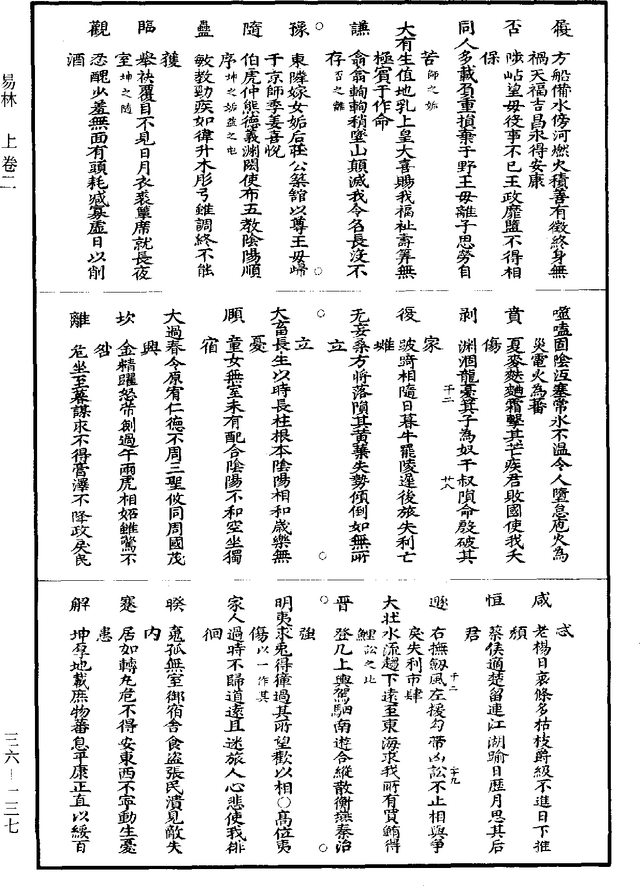 易林　上卷二
履　方船備水傍河燃火積善有徵終身無
禍天福吉昌永得安康
否　陟岵望母役事不已王政靡盬不得相
保
同人多載負重捐棄于野王母離子思勞自
苦師之姤
大有生值地乳上皇大喜賜我福祉壽算無
極賓于作命
謙　翕翕輷輷稍墮山顛滅我令名長沒不
存否之離
豫　東隣嫁女姤后莊公築舘以尊王母歸
于京師季姜喜悅
隨　伯虎仲熊德義淵閎使布五教陰陽順
序坤之姤益之屯
蠱　敏敎勁疾如猨升木彤弓雖調終不能
獲
臨　舉袂覆目不見日月衣裘簟席就長夜
室坤之隨
觀　忍醜少羞無面有頭耗減寡虛日以削
酒
噬嗑固陰沍塞常水不溫令人墮怠庖火為
災電火為蕃
賁　夏麥麩䴬霜擊其芒疾君敗國使我夭
傷
剝　淵涸龍憂箕子為奴干叔隕命殷破其
家
復　波跨相隨日暮牛罷陵遲後旅失利亡
雄
无妄桑方將落隕其黃葉失勢傾倒如無所
立
大畜長生以時長柱根本陰陽相和歲樂無
憂
頤　童女無室未有配合陰陽不和空坐獨
宿
大過春令原宥仁德不周三聖攸同周國茂
興
坎　金精躍怒帶劍過午兩虎相姤雖驚不
咎
離　危坐至暮謀求不得膏澤不降政戾民
忒
咸　老楊日衰條多枯枝爵級不進日下摧
頹
恒　蔡侯適楚留連江湖踰日歷月思其后
君
遯　右撫劒風左援勾帶凶訟不止相與爭
戾失利市肆
大壯水流趨下遠至東海求我所有買鮪得
鯉訟之比
晉　登几上輿駕駟南遊合縱散衡燕秦治
強
明夷求兎得獐過其所望歡以相○高位夷
傷以一作其
家人過時不歸道遠且迷旅人心悲使我徘
徊
睽　㐫孤無室御宿舍食盜張民潰見敵失
內
蹇　居如轉丸危不得安東西不寧動生憂
患
解　坤厚地載庶物蕃息平康正直以綏百
三六—一三七